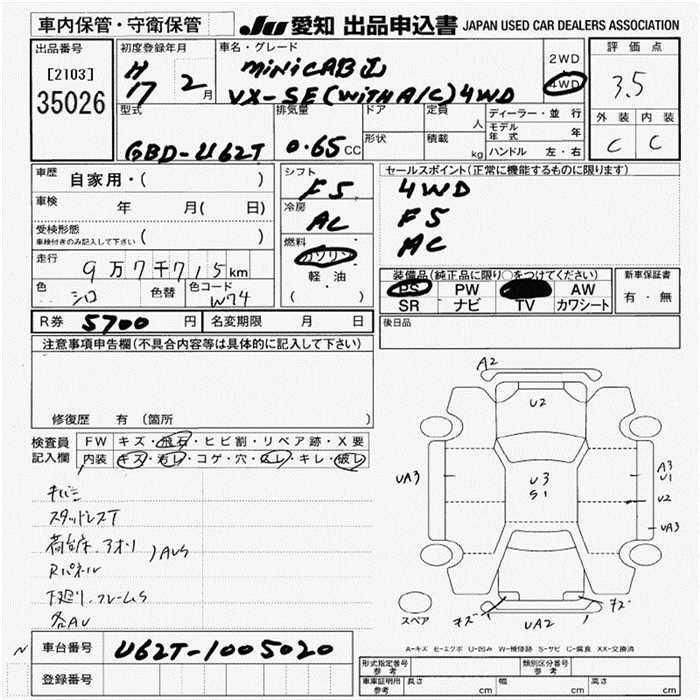 車内保管・守衛保管
JU 愛知 出品申込書 JAPAN USED CAR DEALERS ASSOCIATION
出品番号
[2103]
35026
初度登録年月
H17 2月
車名・グレード
miniCAB
VX-SE (with A/C) 4WD
2WD
4WD
評価点
3.5
外装 内装
C C
型式
GBD-U62T
排気量
0.65CC
ドア
形状
定員 人
積載 kg
ディーラー・並行
モデル年式 年
ハンドル 左・右
車歴 自家用・( )
車検 年 月( 日)
受検形態
車検付きのみ記入して下さい ( )
走行
9万7千715km
色 シロ 色替 色コード W74
シフト
F5
冷房
AC
燃料
ガソリン
軽油
( )
セールスポイント(正常に機能するものに限ります)
4WD
F5
AC
装備品(純正品に限り〇をつけてください)
PS PW AW
SR ナビ TV カワシート
新車保証書
有・無
R券 5700円 名変期限 月 日
後日品
注意事項申告欄(不具合内容等は具体的に記入して下さい)
修復歴 有 (箇所 )
検査員記入欄
FW キズ・飛石・ヒビ割・リペア跡・X要
内装 キズ・汚レ・コゲ・穴・スレ・キレ・破レ
キバミ
スタッドレスT
荷台床、アオリ
Rパネル
)AUS
下廻り、フレームS
各AU
A2
U2
UA3
U3
S1
A3
U1
U2
UA3
キズ
UA2
キズ
スペア
A-キズ E-エクボ U-凹み W-補修跡 S-サビ C-腐食 XX-交換済
N
車台番号 U62T-1005020
登録番号
形式指定番号 参考
類別区分番号 参考
車庫証明用 参考 長さ cm 幅 cm 高さ cm